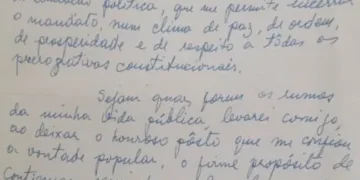 política, que me permite encerrar
o mandato, num clima de paz, de ordem,
de prosperidade e de respeito a tôdas as
prerogativas constitucionais.
Sejam quais forem os rumos
da minha vida pública, levarei comigo,
ao deixar o honroso pôsto que me confiou
a vontade popular, o firme propósito de